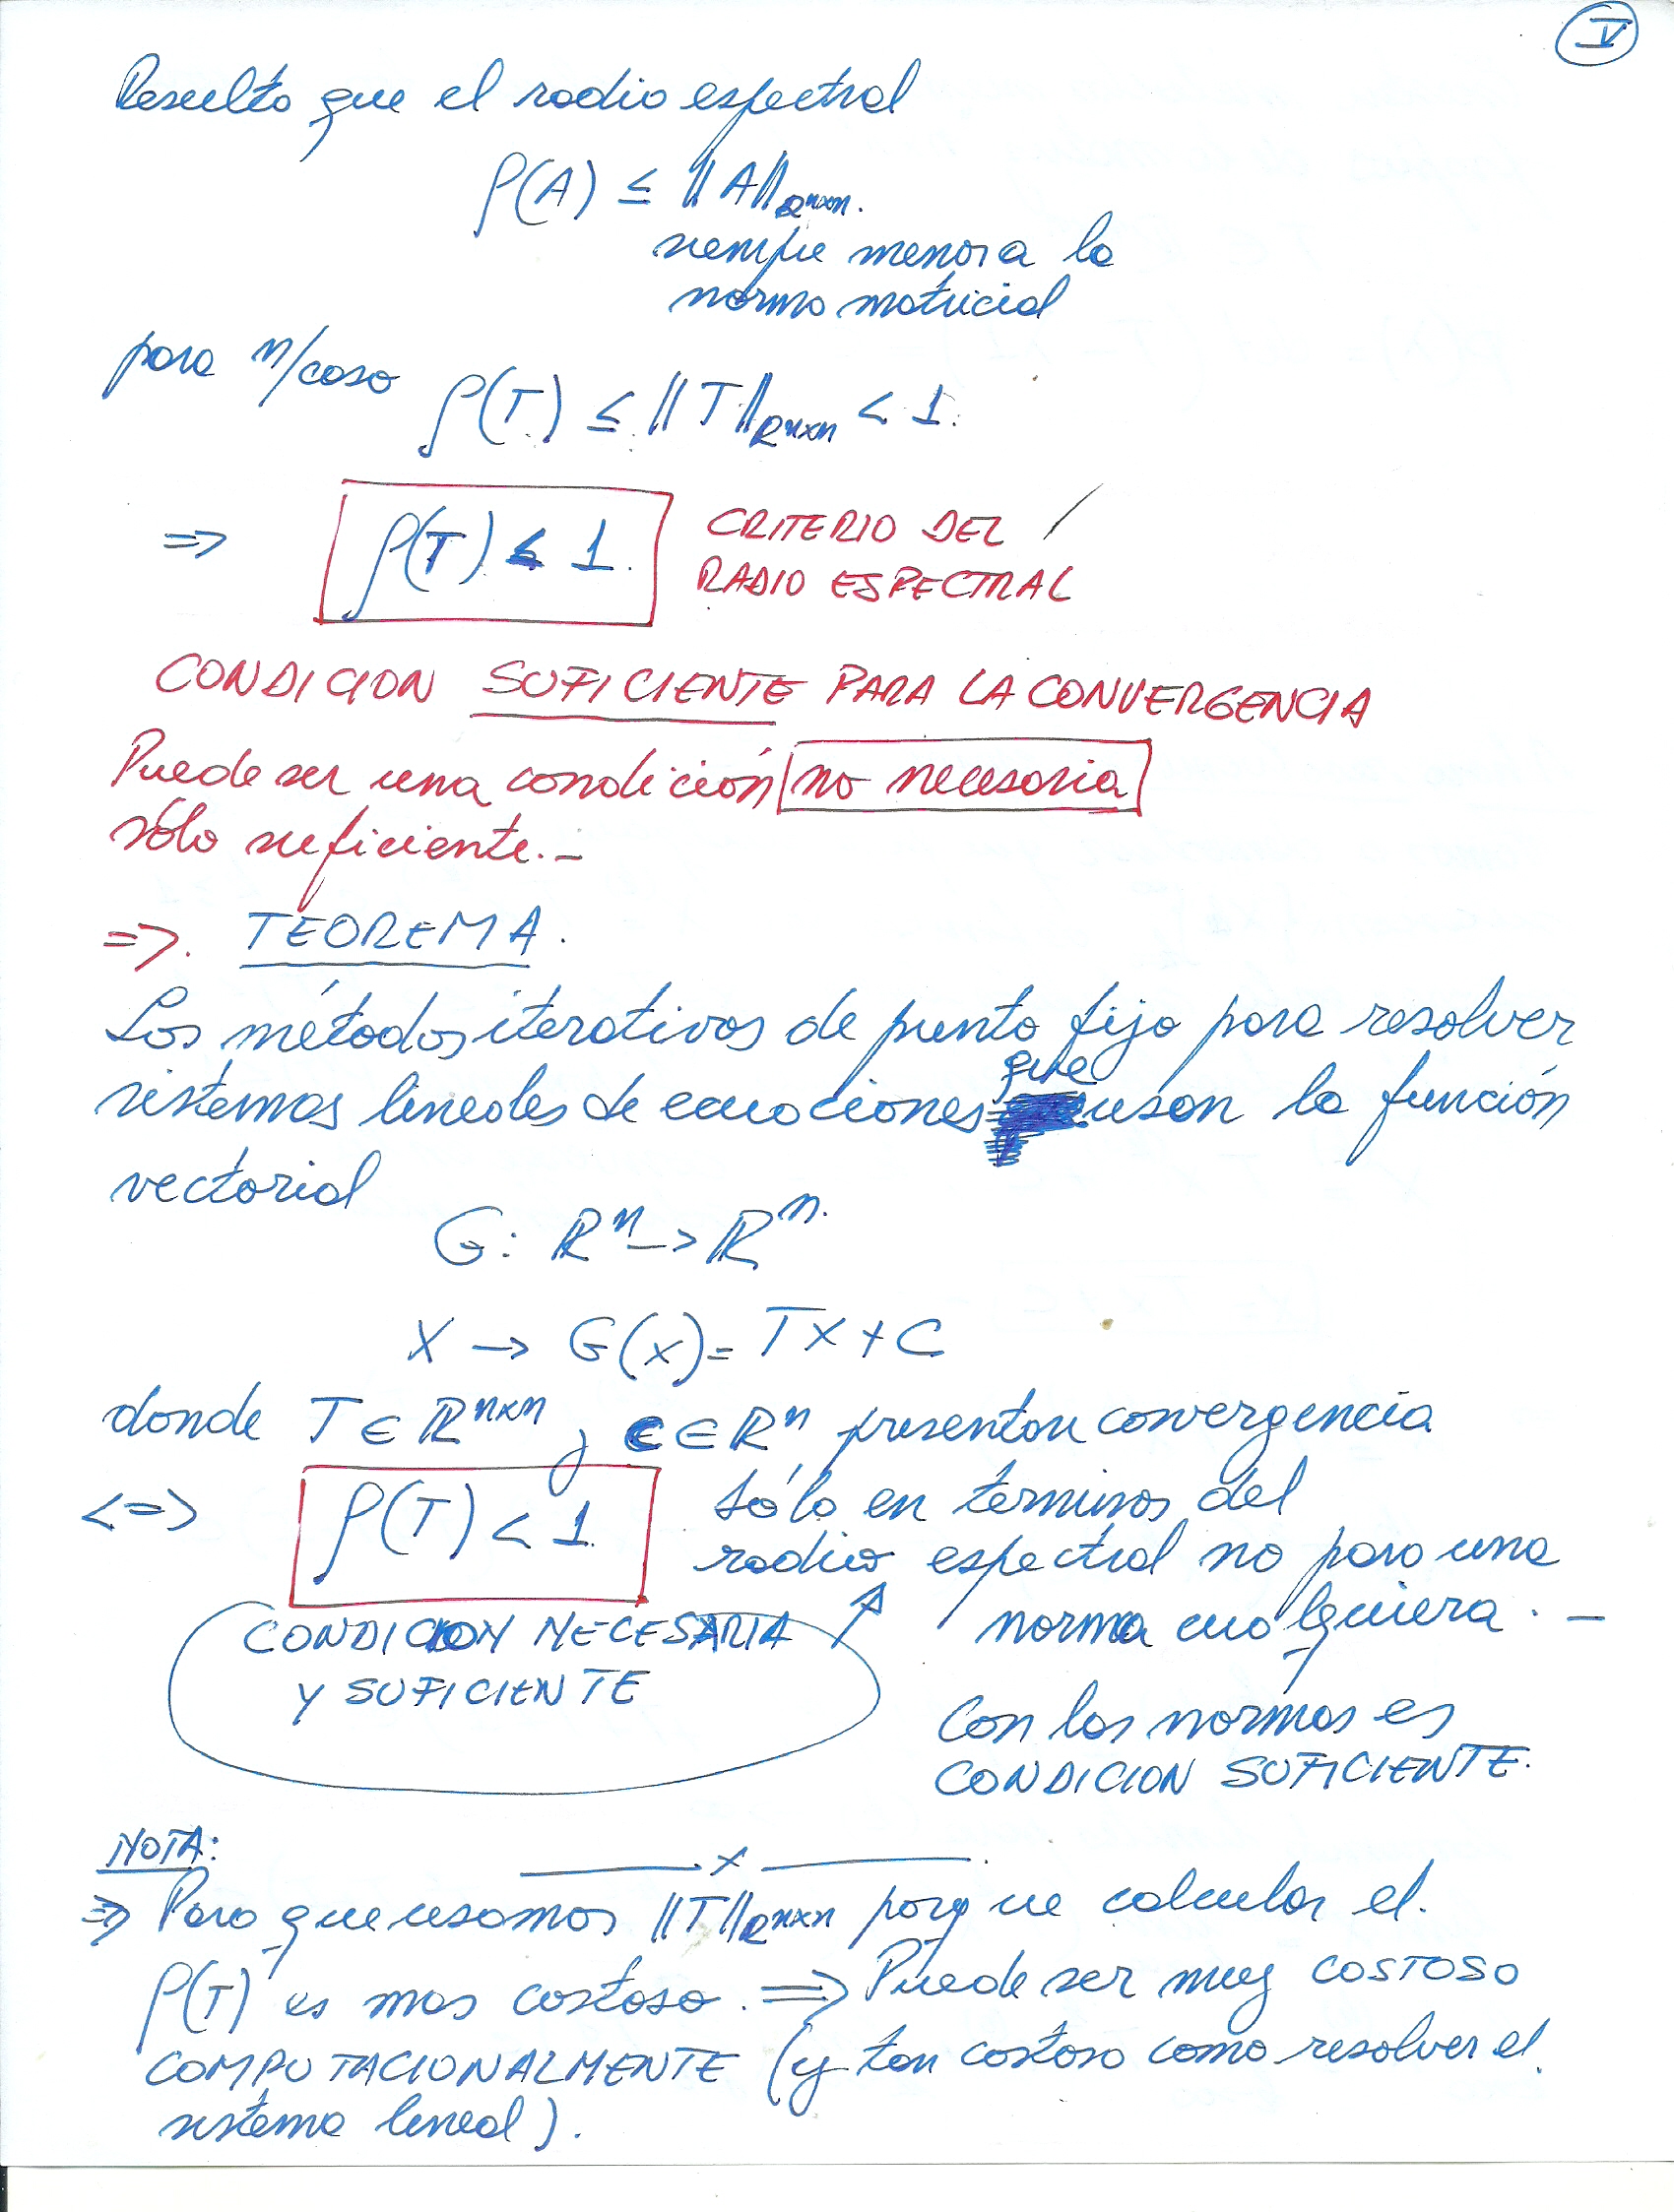 V
Resulta que el radio espectral
ρ(A) ≤ ||A||ℝⁿˣⁿ.
siempre menor a la
norma matricial
para n/caso ρ(T) ≤ ||T||ℝⁿˣⁿ < 1.
⇒ ρ(T) < 1. CRITERIO DEL
RADIO ESPECTRAL
CONDICION SUFICIENTE PARA LA CONVERGENCIA
Puede ser una condición no necesaria
sólo suficiente.-
⇒. TEOREMA.
Los métodos iterativos de punto fijo para resolver
sistemas lineales de ecuaciones que usan la función
vectorial
G: ℝⁿ -> ℝⁿ.
X → G(x) = TX + C
donde T ∈ ℝⁿˣⁿ y C ∈ ℝⁿ presentan convergencia
<=> ρ(T) < 1. sólo en terminos del
radio espectral no para una
norma cualquiera. -
CONDICION NECESARIA
Y SUFICIENTE
Con las normas es
CONDICION SUFICIENTE.
NOTA:
x
⇒ Para que usamos ||T||ℝⁿˣⁿ porque calcular el.
ρ(T) es mas costoso. ⇒ Puede ser muy COSTOSO
COMPUTACIONALMENTE (y tan costoso como resolver el.
sistema lineal).